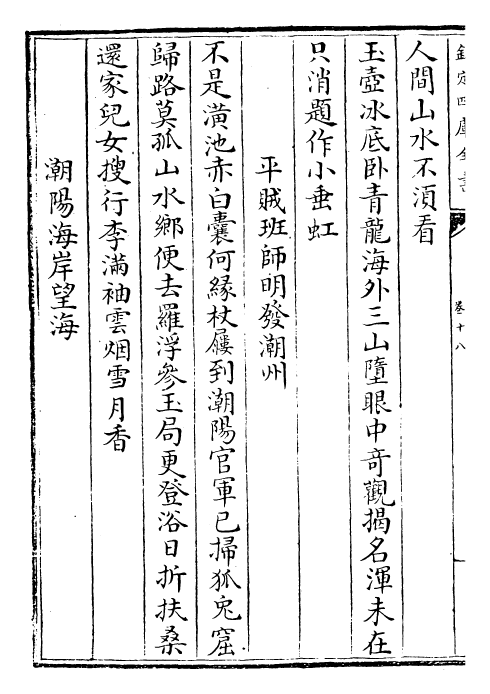 欽定四庫全書
卷十八
人間山水不須看
玉壺冰底卧青龍海外三山墮眼中奇觀揭名渾未在
只消題作小垂虹
平賊班師明發潮州
不是潢池赤白囊何緣杖屨到潮陽官軍已掃狐兎窟
歸路莫孤山水鄉便去羅浮參玉局更登浴日折扶桑
還家兒女搜行李滿袖雲烟雪月香
潮陽海岸望海